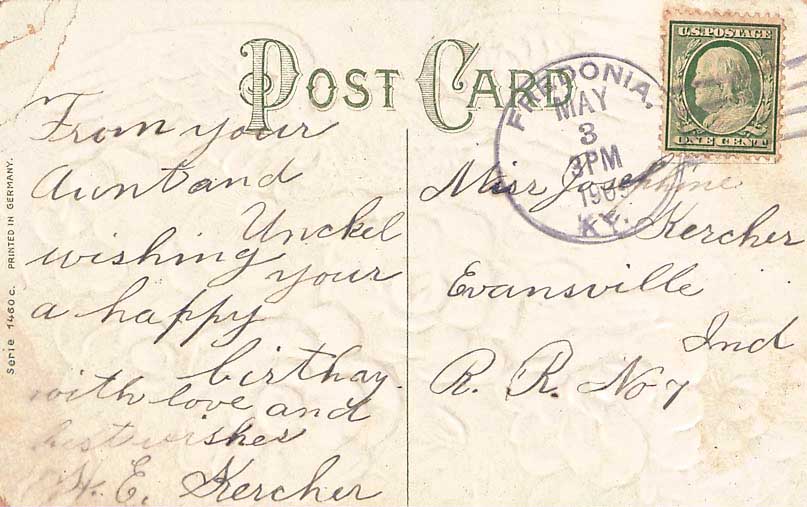 POST CARD
FREDONIA,
MAY
3
3PM
KY.
U.S. POSTAGE
ONE CENT
From your
Aunt and
Unckel
wishing your
a happy
birthay.
with love and
best wishes
H. E. Kercher
Miss Josephine
Kercher
Evansville
Ind
R. R. No 7
Serie 1460 c. PRINTED IN GERMANY.